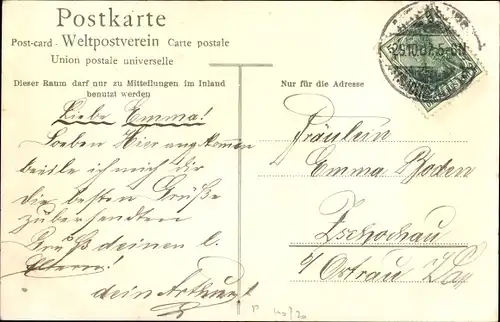 Postkarte
Post-card - Weltpostverein Carte postale
Union postale universelle
Dieser Raum darf nur zu Mitteilungen im Inland
benutzt werden
Nur für die Adresse
Liebe Emma!
Soeben Hier angekommen
beeile ich mich dir
die besten Grüße
zu übersenden
Gruß deinen l.
Eltern!
dein Arthur
Fräulein
Emma Boden
Zschochau
Ostrau
29.10.07